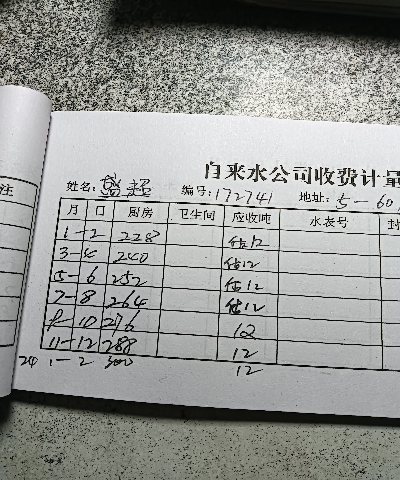 注
自来水公司收费计量
姓名: 超 编号: 172741 地址: 5-60
月 口 厨房 卫生间 应收吨 水表号 封
1-2 228 估12
3-4 240 估12
5-6 252 估12
7-8 264 估12
9-10 276 12
11-12 288 12
24 1-2 300 12